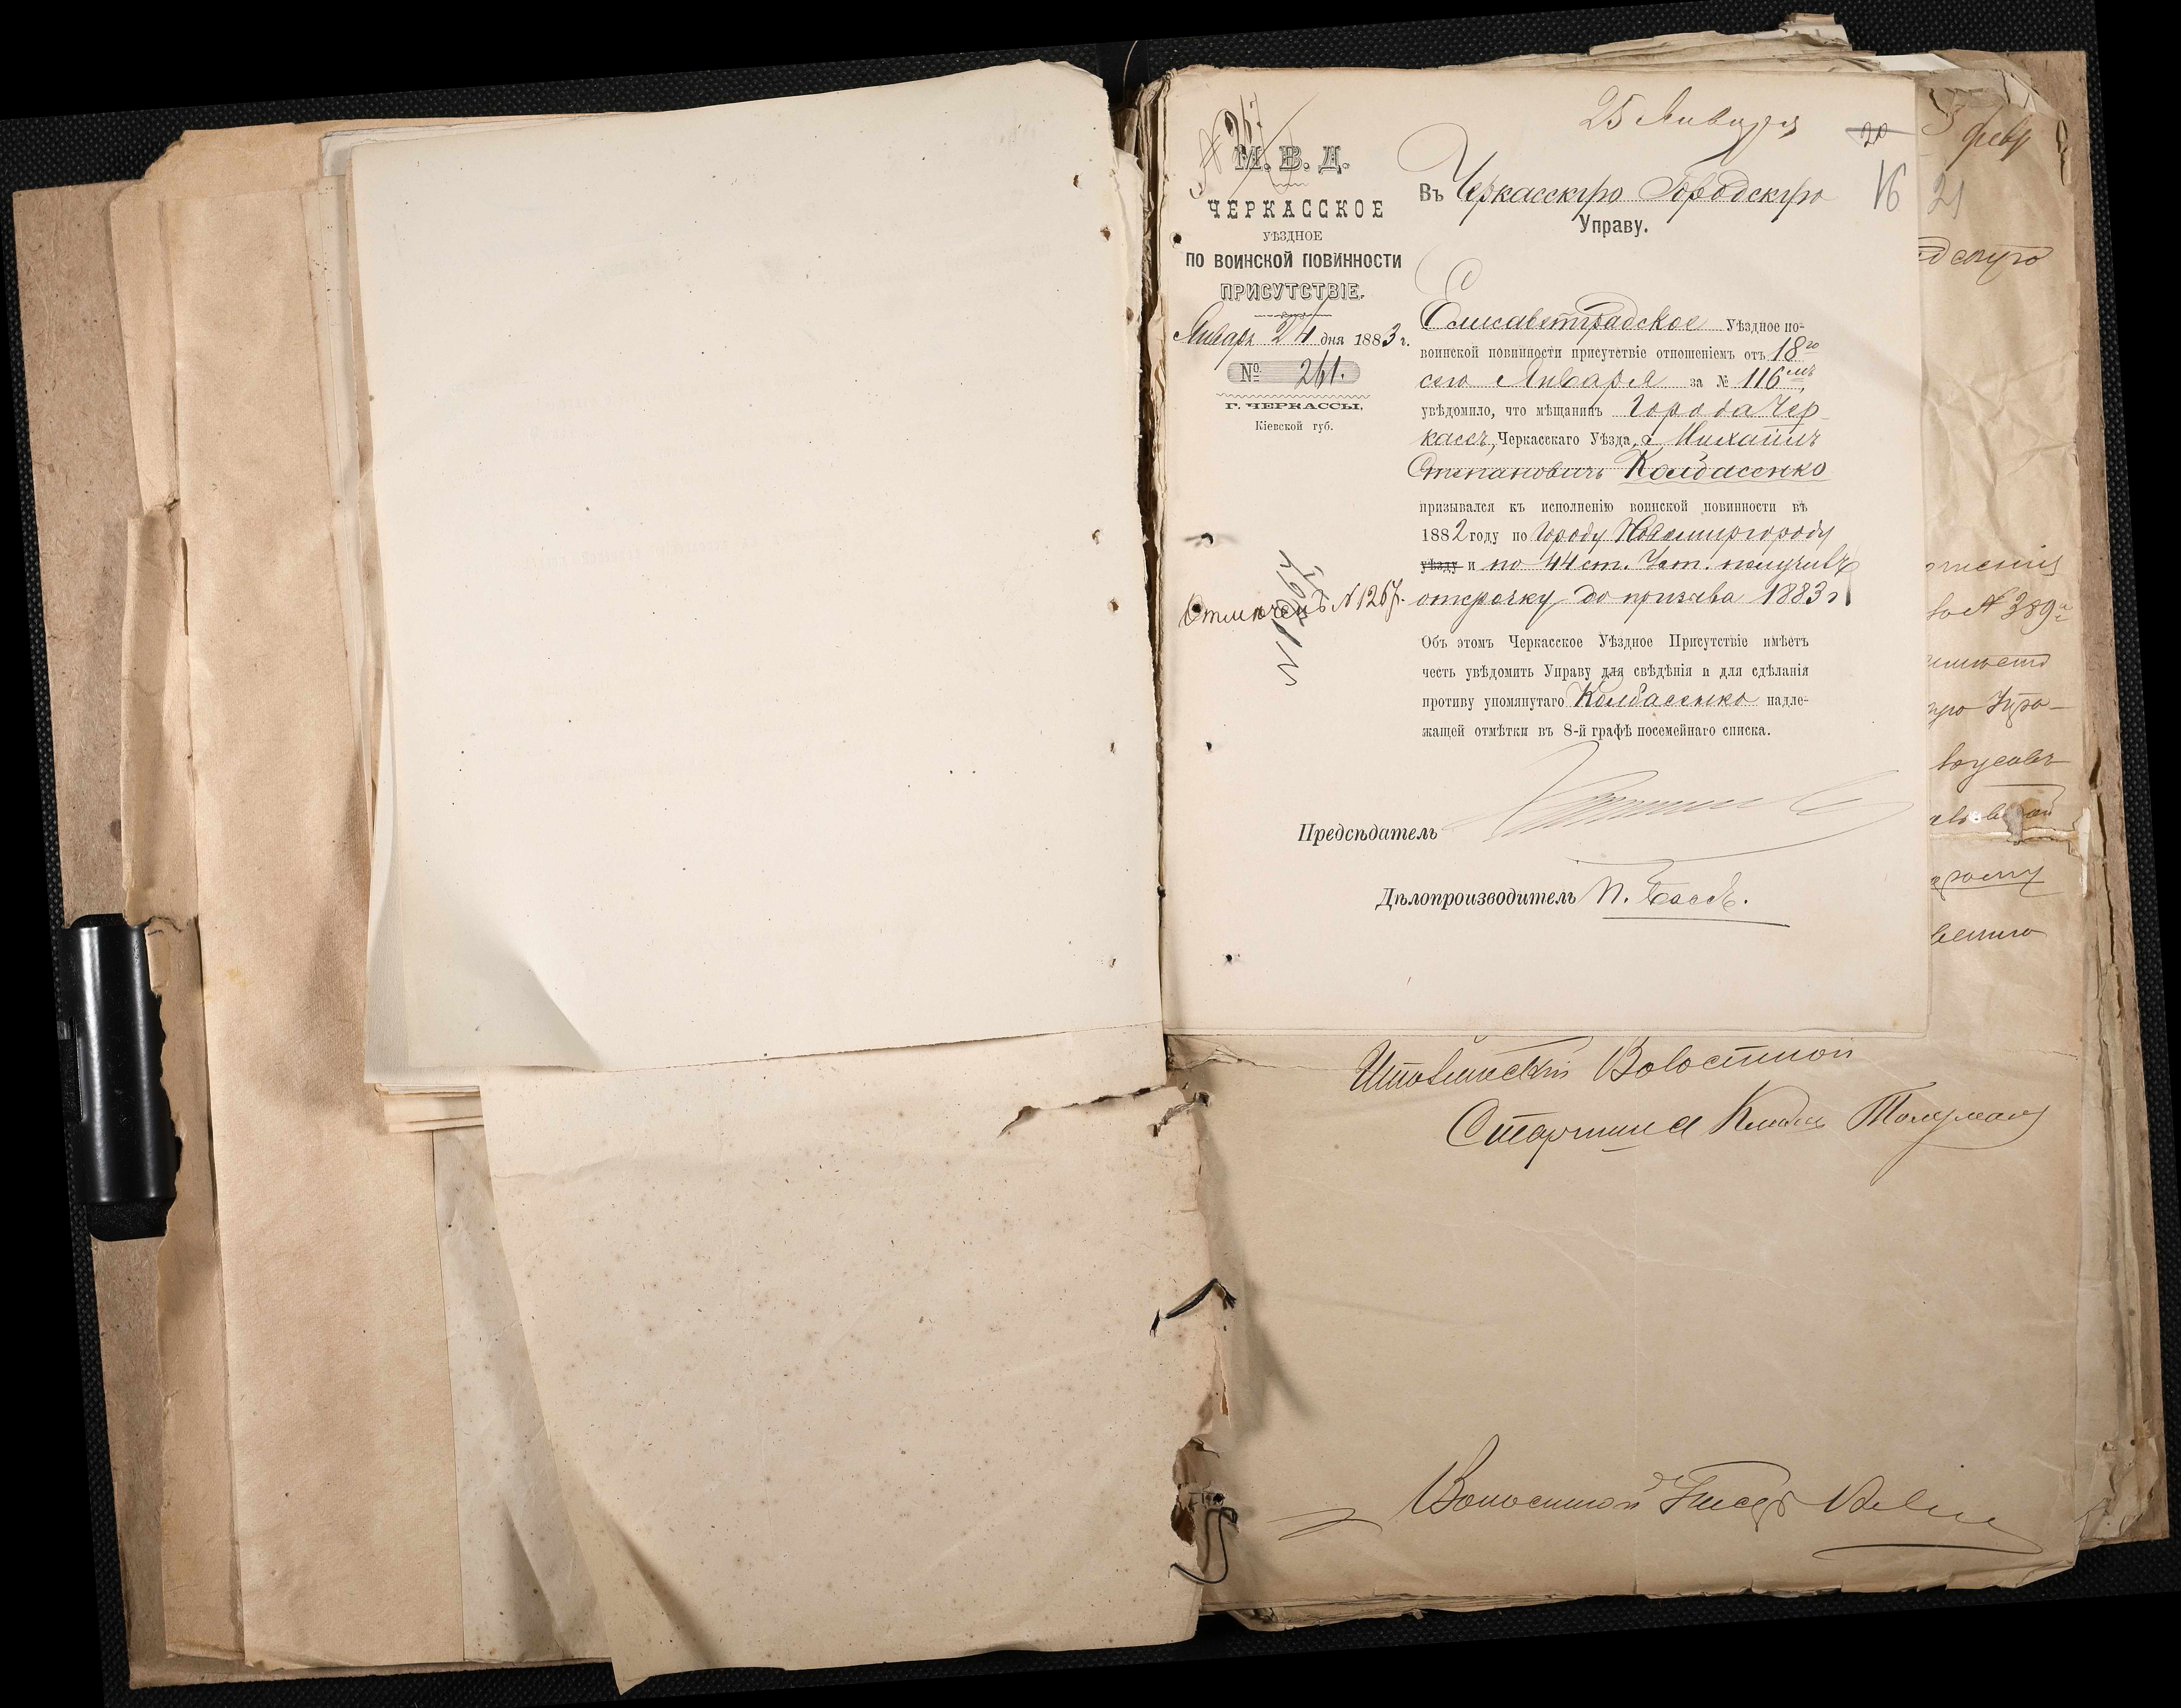 25 Января
20
16
М. В. Д.
ЧЕРКАССКОЕ
УѢЗДНОЕ
ПО ВОИНСКОЙ ПОВИННОСТИ
ПРИСУТСТВІЕ.
Января 24 дня 1883 г.
№ 261.
Г. ЧЕРКАССЫ,
Кіевской губ.
Отмѣчено № 1267.
Въ Черкасскую Городскую
Управу.
Елисаветградское Уѣздное по
воинской повинности присутствіе отношеніемъ отъ 18го
сего Января за № 116мъ,
увѣдомило, что мѣщанинъ города Чер-
кассъ, Черкасскаго Уѣзда, Михаилъ
Степановичъ Колбасенко
призывался къ исполненію воинской повинности въ
1882 году по городу Новомиргороду
уѣзду и по 44 ст. Уст. получилъ
отсрочку до призыва 1883 г
Объ этомъ Черкасское Уѣздное Присутствіе имѣетъ
честь увѣдомить Управу для свѣдѣнія и для сдѣланія
противу упомянутаго Колбасенко надле-
жащей отмѣтки въ 8-й графѣ посемейнаго списка.
Предсѣдатель
Дѣлопроизводитель П. Бассъ.
3 февр
21
дскую
№ 389
Волостной
Старшина
Волостной Писарь